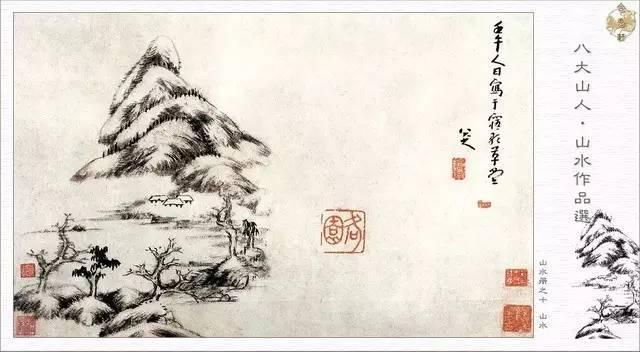 八大山人·山水作品選
山水冊之十 山水
壬午人日寫于寤歌草堂